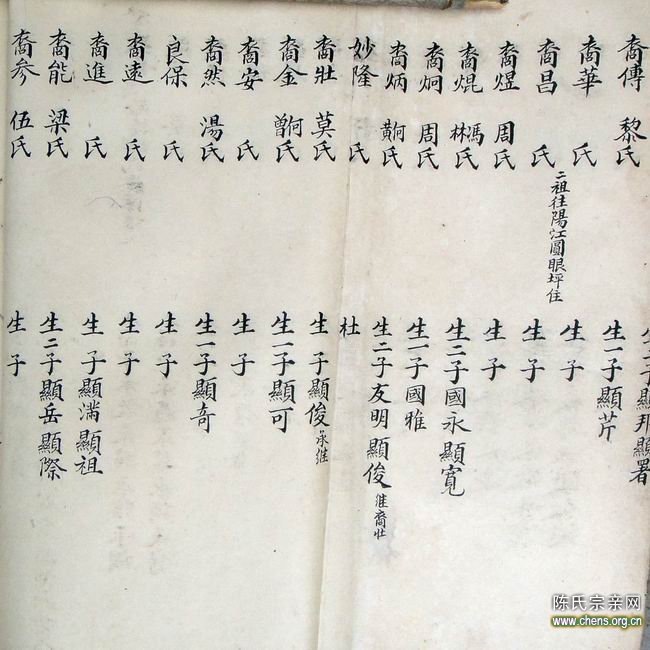 生二子顯邦顯署
裔傳 黎氏 生一子顯芹
裔華 氏 生 子
二祖往陽江圓眼坪住
裔昌 氏 生 子
裔煜 周氏 生 子
裔焜 馮林氏 生二子國永顯寬
裔炯 周氏 生一子國雅
裔炳 何黃氏 生二子友明顯俊 継裔壯
妙隆 氏 杜
裔壯 莫氏 生 子顯俊承継
裔金 何曾氏 生一子顯可
裔安 氏 生 子
裔然 湯氏 生一子顯奇
良保 氏 生 子
裔遠 氏 生 子
裔進 氏 生 子顯滿顯祖
裔能 梁氏 生二子顯岳顯際
裔參 伍氏 生 子
陈氏宗亲网
www.chens.org.cn